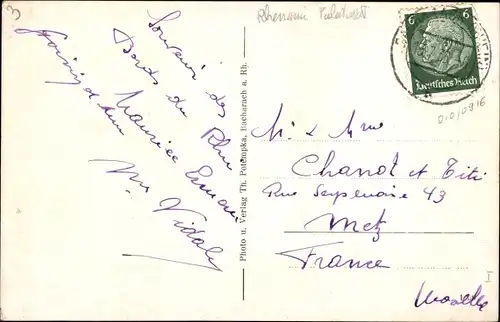 3
Rhénanie
Souvenir des
Bords du Rhin
Maurice
Mr Vidal
Photo u. Verlag Th. Potempka, Bacharach a. Rh.
6 6
Deutsches Reich
010/0916
M. & Mme
Chanot et Titi
Rue Serpenoise 43
Metz
France
Moselle
I